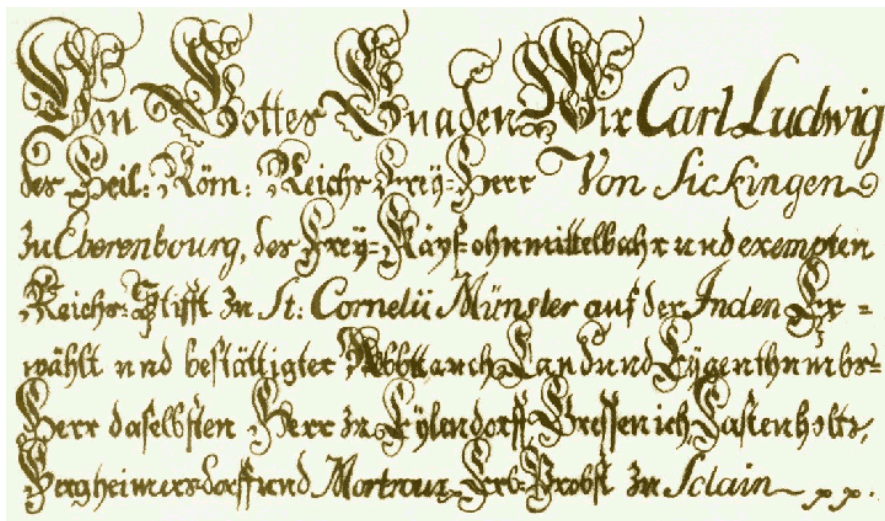 Von Gottes Gnaden Wir Carl Ludwig
des Heil: Röm: Reichs Freÿ=Herr Von Sickingen
zu Eberenbourg, des Freÿ=Käyß=ohnmittelbahr und exempten
Reichs=Stifft zu St: Cornelii Münster auf der Inden Er=
wählt und bestättigter Abbt auch Land und Eÿgenthumbs=
Herr daselbsten Herr zu Eÿlendorff Gressenich Castenholtz,
Bergheimersdorff und Mortroux Erb=Probst zu Sclain